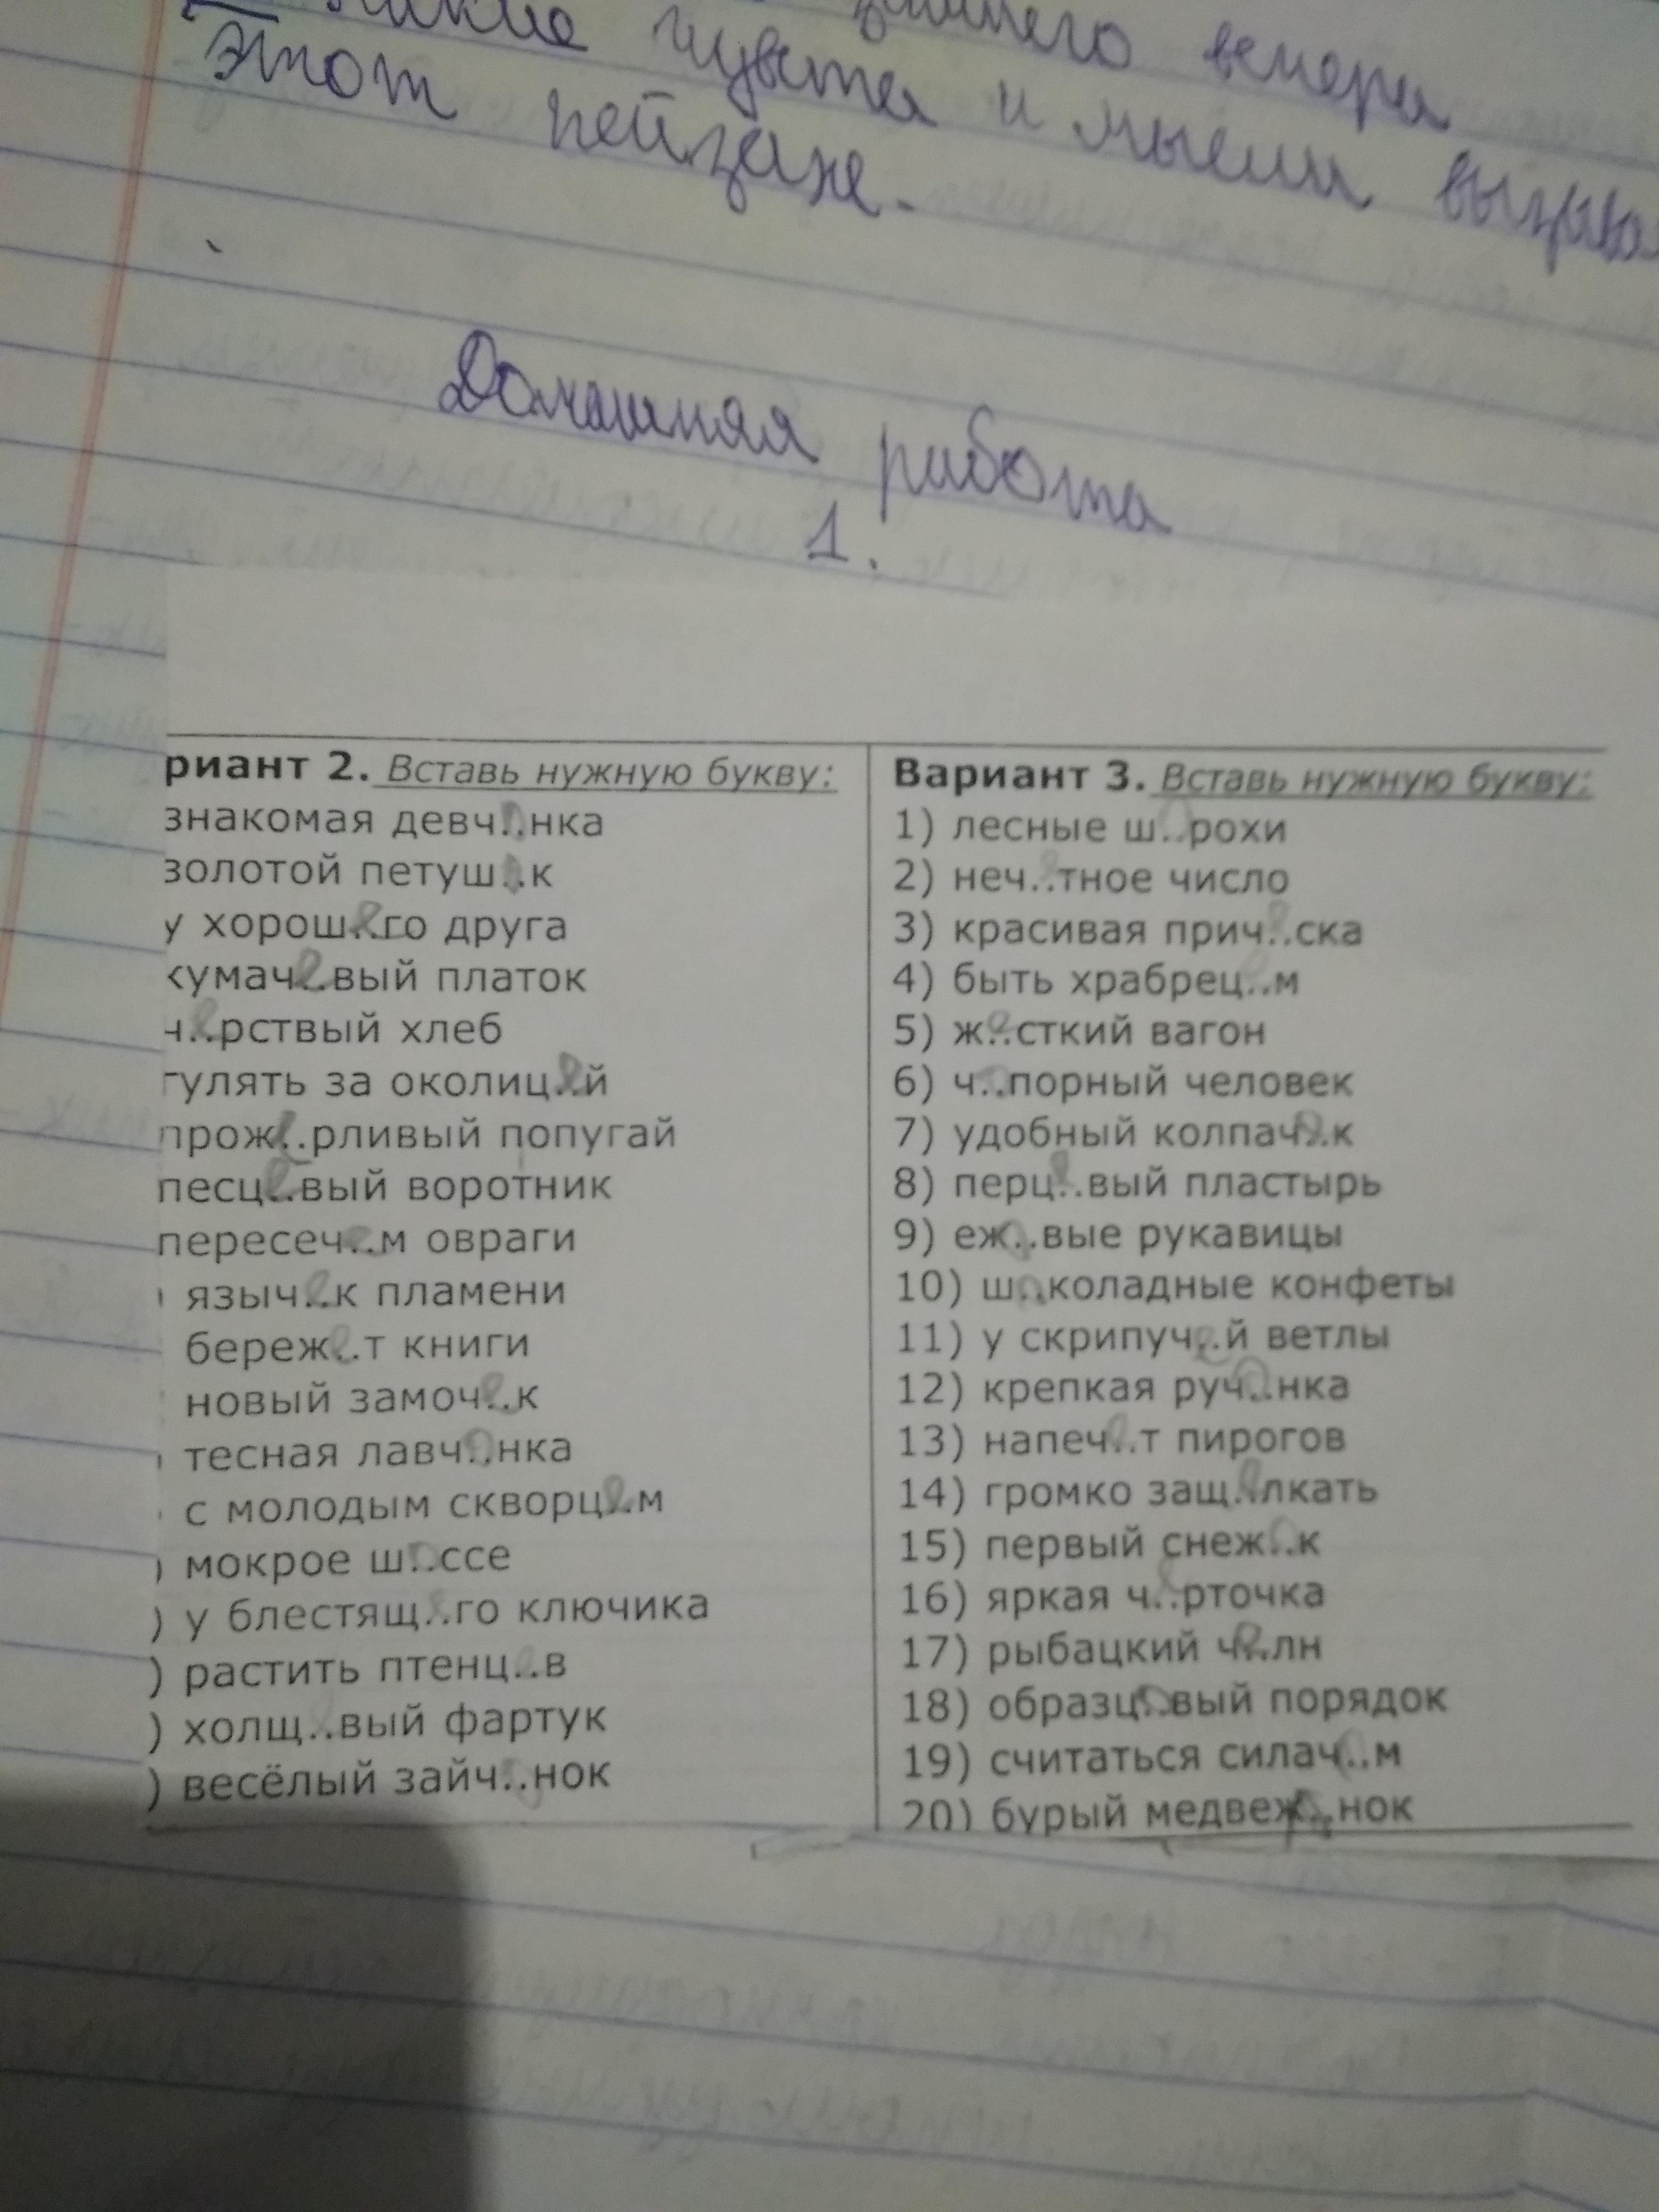 зимнего вечера
Какие чувства и мысли
этот пейзаж.
Домашняя работа
1.
риант 2. Вставь нужную букву:
знакомая девч..нка
золотой петуш..к
у хорош..го друга
кумач..вый платок
ч..рствый хлеб
гулять за околиц..й
прож..рливый попугай
песц..вый воротник
пересеч..м овраги
языч..к пламени
береж..т книги
новый замоч..к
тесная лавч..нка
с молодым скворц..м
) мокрое ш..ссе
) у блестящ..го ключика
) растить птенц..в
) холщ..вый фартук
) весёлый зайч..нок
Вариант 3. Вставь нужную букву:
1) лесные ш..рохи
2) неч..тное число
3) красивая прич..ска
4) быть храбрец..м
5) ж..сткий вагон
6) ч..порный человек
7) удобный колпач..к
8) перц..вый пластырь
9) еж..вые рукавицы
10) ш..коладные конфеты
11) у скрипуч..й ветлы
12) крепкая руч..нка
13) напеч..т пирогов
14) громко защ..лкать
15) первый снеж..к
16) яркая ч..рточка
17) рыбацкий ч..лн
18) образц..вый порядок
19) считаться силач..м
20) бурый медвеж..нок